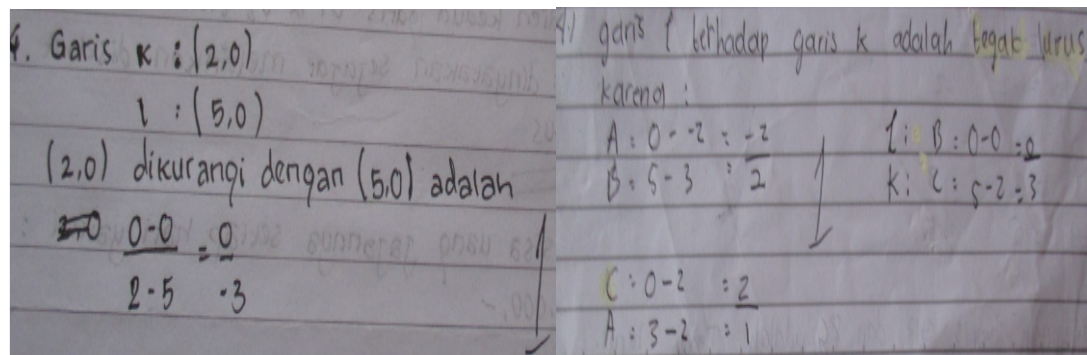 4. Garis K : (2,0)
l : (5,0)
(2,0) dikurangi dengan (5,0) adalah
: 0-0 = 0
2-5 -3
4.) garis l terhadap garis k adalah tegak lurus
karena :
A : 0 - -2 : -2
B : 5 - 3 : 2
l : B : 0-0 = 0
K : C : 5-2 = 3
C : 0-2 : 2
A : 3-2 : 1